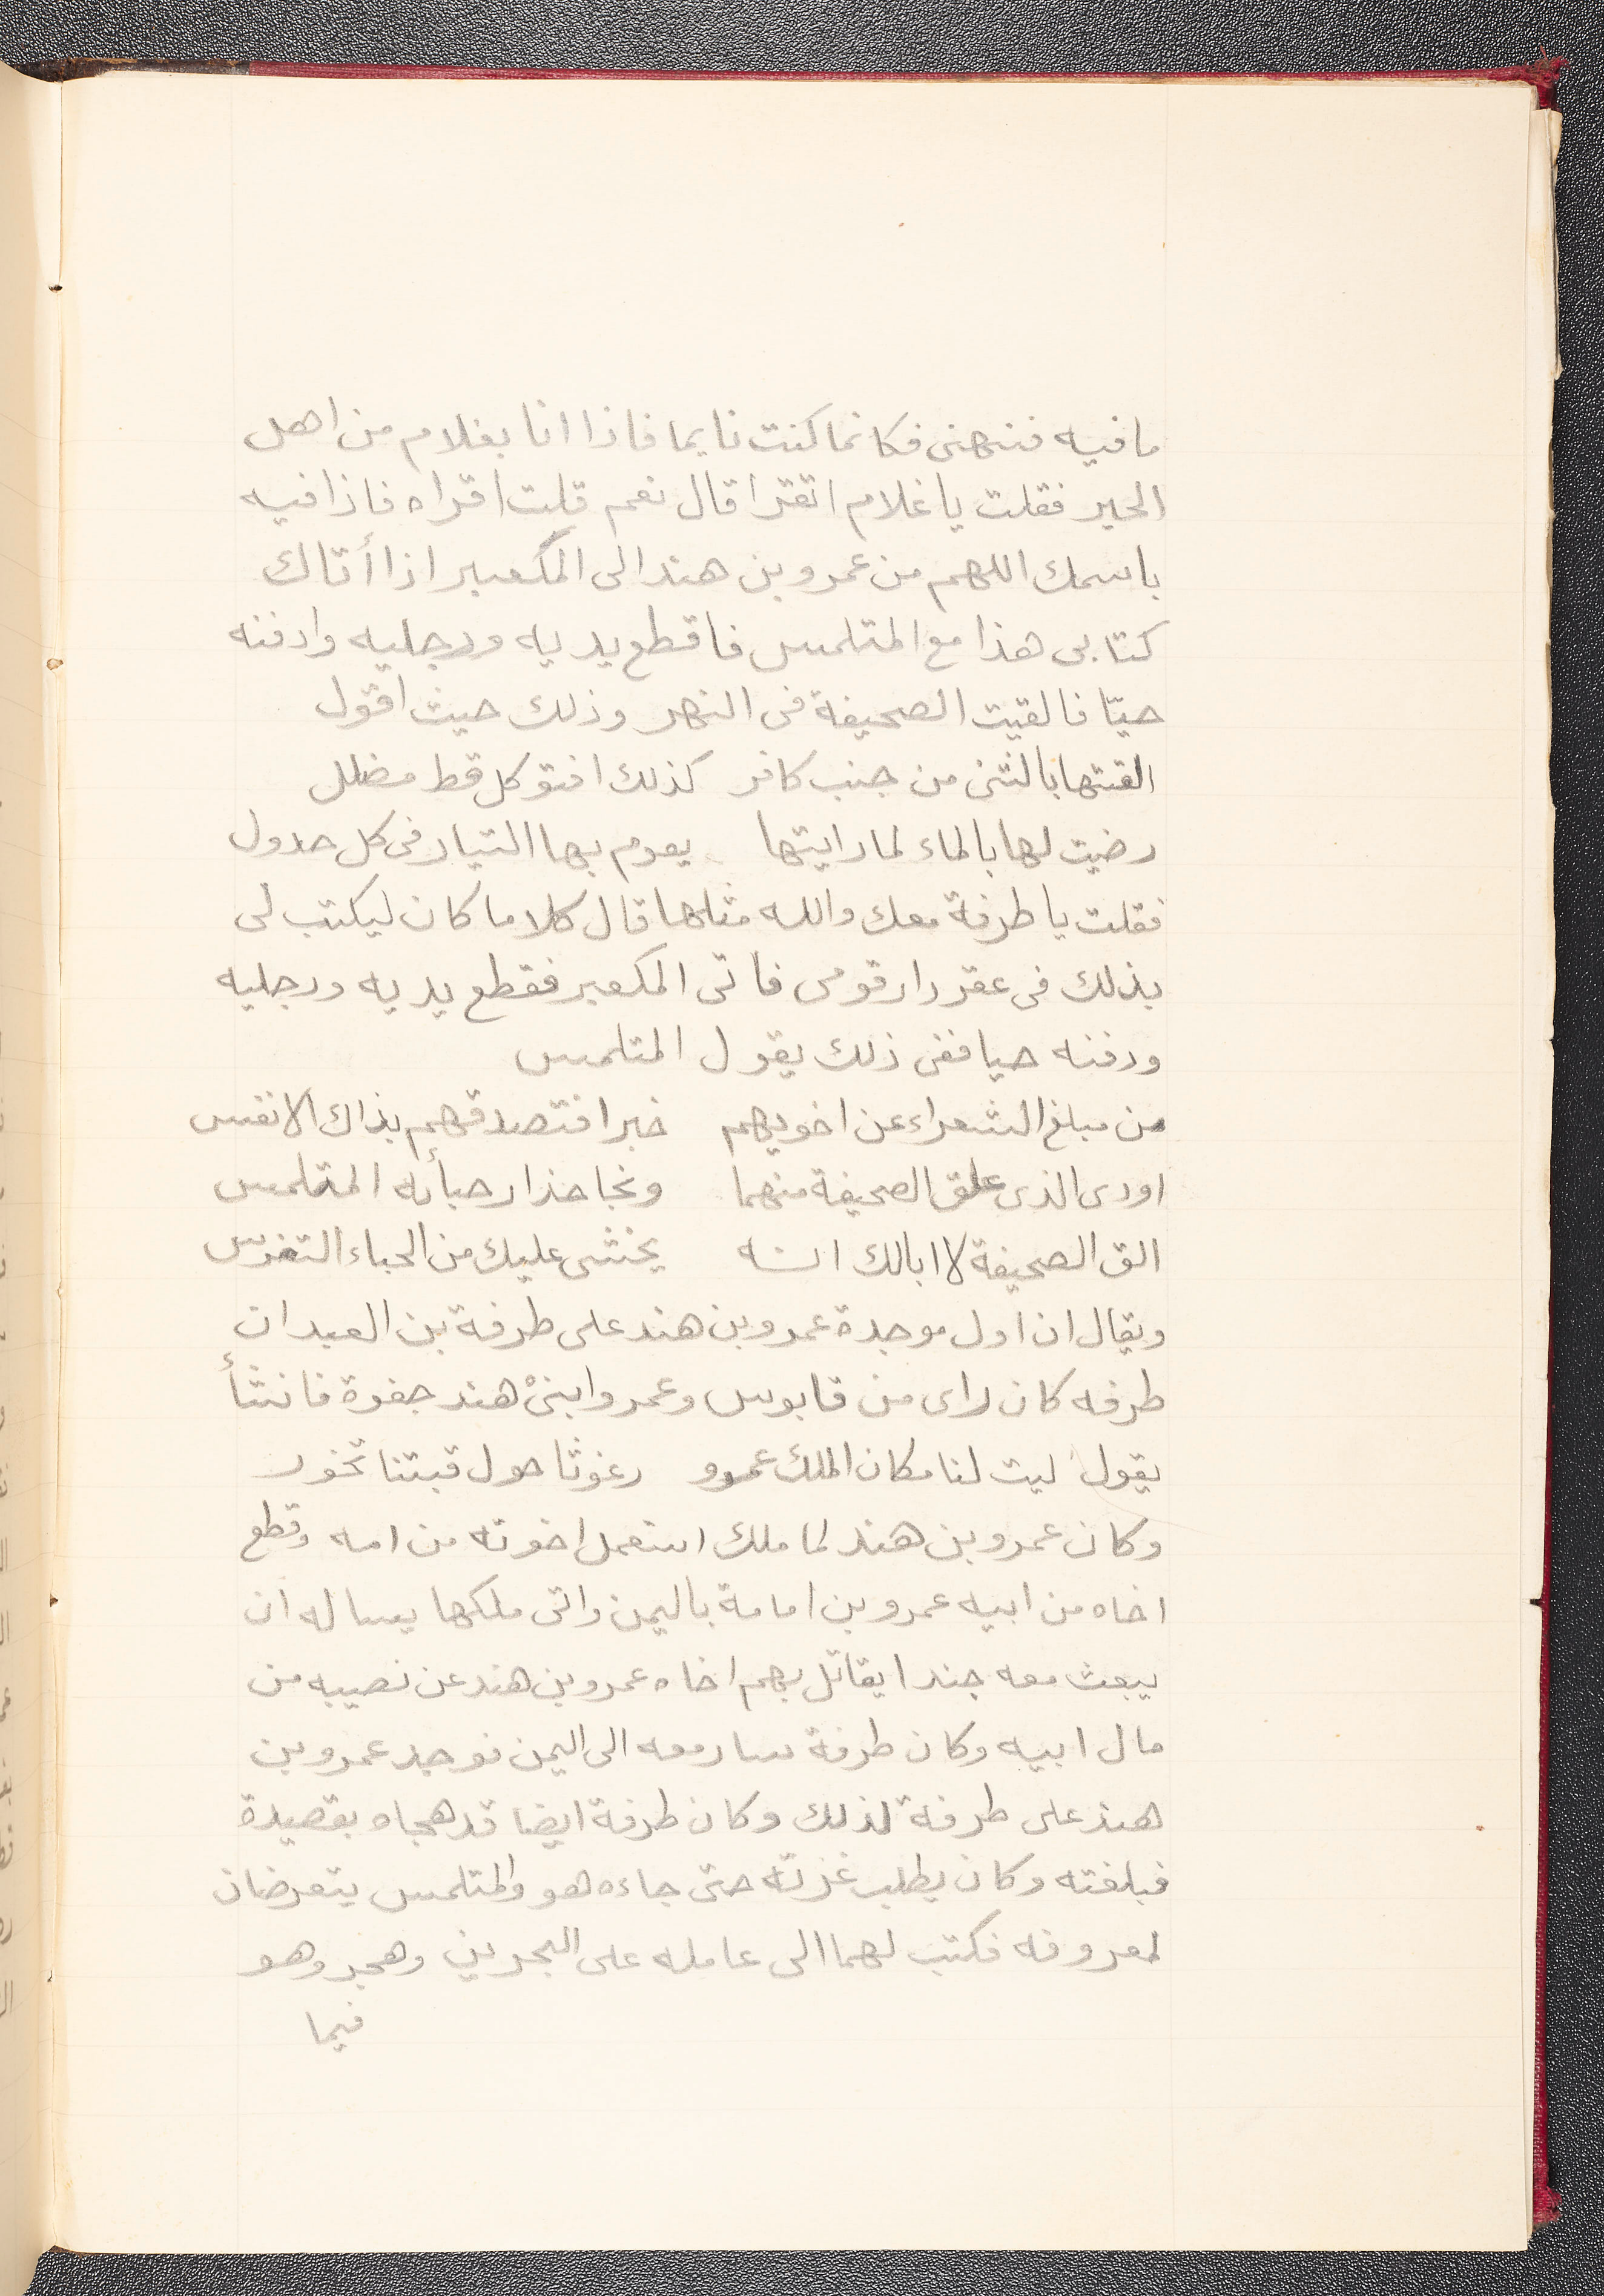 ما فيه فنهنى فكانما كنت نايما فاذا انا بغلام من اهل
الحير فقلت يا غلام اتقرا قال نعم قلت اقراه فاذا فيه
باسمك اللهم من عمرو بن هند الى المكعبر اذا أتاك
كتابى هذا مع المتلمس فاقطع يديه ورجليه وادفنه
حيّا فالقيت الصحيفة فى النهر وذلك حيث اقول
القتها بالثنى من جنب كافر كذلك افتو كل قط مضلل
رضيت لها بالماء لما رايتها يعوم بها التيار فى كل جدول
فقلت يا طرفة معك والله مثلها قال كلا ما كان ليكتب لى
بذلك فى عقر دار قومى فاتى المكعبر فقطع يديه ورجليه
ودفنه حيا ففى ذلك يقول المتلمس
من مبلغ الشعراء عن اخويهم خبرا فتصدقهم بذاك الانفس
اودى الذى علق الصحيفة منهما ونجا حذار حبأئه المتلمس
الق الصحيفة لا ابالك انه يخشى عليك من الحباء النقرس
ويقال ان اول موجدة عمرو بن هند على طرفة بن العبد ان
طرفه كان راى من قابوس وعمرو ابنىْ هند جفوة فانشأ
يقول ليت لنا مكان الملك عمرو رغوثا حول قبتنا تخور
وكان عمرو بن هند لما ملك استعمل اخوته من امه وقطع
اخاه من ابيه عمرو بن امامة باليمن واتى ملكها يساله ان
يبعث معه جندا يقاتل بهم اخاه عمرو بن هند عن نصيبه من
مال ابيه وكان طرفة سار معه الى اليمن فوجد عمرو بن
هند على طرفة لذلك وكان طرفة ايضا قد هجاه بقصيدة
فبلغته وكان يطلب غرته حتى جاءه هو والمتلمس يتعرضان
لمعروفه فكتب لهما الى عامله على البحرين وهجر وهو
فيما